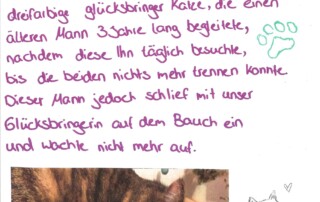 dreifarbige glücksbringer Katze, die einen
älteren Mann 3 Jahre lang begleitete,
nachdem diese Ihn täglich besuchte,
bis die beiden nichts mehr trennen konnte.
Dieser Mann jedoch schlief mit unser
Glücksbringerin auf dem Bauch ein
und wachte nicht mehr auf.